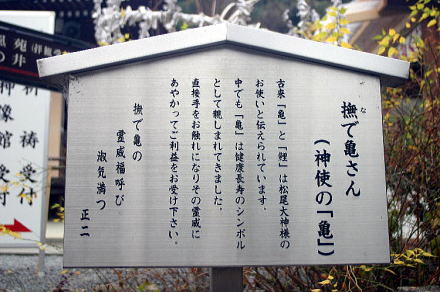 撫で亀さん
な
（神使の「亀」）
古来「亀」と「鯉」は松尾大神様の
お使いと伝えられています。
中でも「亀」は健康長寿のシンボル
として親しまれてきました。
直接手をお触れになりその霊威に
あやかってご利益をお受け下さい。
撫で亀の
霊威福呼び
淑気満つ
正二
祈祷受付
神像館受付